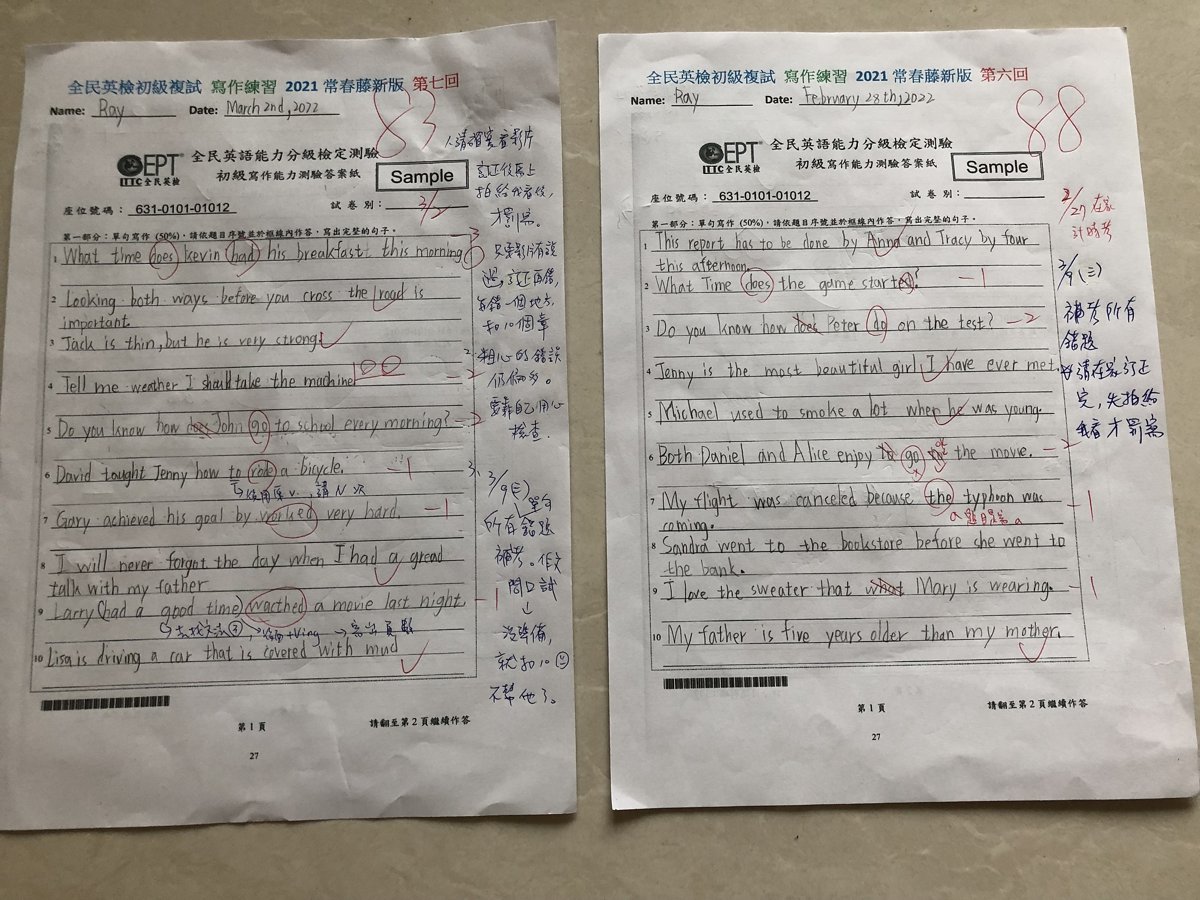 全民英檢初級複試 寫作練習 2021 常春藤新版 第七回
Name: Ray Date: March 2nd, 2022
83
GEPT 全民英語能力分級檢定測驗
LTTC 全民英檢 初級寫作能力測驗答案紙
Sample
座位號碼: 631-0101-01012 試卷別:
3/2
第一部分:單句寫作 (50%),請依題目序號並於框線內作答,寫出完整的句子。
1 What time does kevin had his breakfast this morning
2 Looking both ways before you cross the road is
important
3 Jack is thin, but he is very strong.
4 Tell me weather I should take the machine
5 Do you know how does John go to school every morning? -2
6 David tought Jenny how to rode a bicycle. -1
7 Gary achieved his goal by worked very hard. -1
8 I will never forgot the day when I had a gread
talk with my father
9 Larry (had a good time) wacthed a movie last night. -1
10 Lisa is driving a car that is covered with mud
訂正後馬上
拍給我看後,
才罰寫。
粗心的錯誤
檢查.
3/9(三)
所有錯題
補考。作文
問口試
沒準備,
就扣10
不幫他了。
第 1 頁 請翻至第 2 頁繼續作答
27
全民英檢初級複試 寫作練習 2021 常春藤新版 第六回
Name: Ray Date: February 28th, 2022
88
GEPT 全民英語能力分級檢定測驗
LTTC 全民英檢 初級寫作能力測驗答案紙
Sample
座位號碼: 631-0101-01012 試卷別:
第一部分:單句寫作 (50%),請依題目序號並於框線內作答,寫出完整的句子。
1 This report has to be done by Anna and Tracy by four
this afternoon
2 What Time does the game started? -1
3 Do you know how does Peter do on the test? -2
4 Jenny is the most beautiful girl I have ever met.
5 Michael used to smoke a lot when he was young.
6 Both Daniel and Alice enjoy to go to the movie. -2
7 My flight was canceled because the typhoon was -1
coming.
8 Sandra went to the bookstore before she went to
the bank.
9 I love the sweater that what Mary is wearing. -1
10 My father is five years older than my mother.
2/27 在家
計時考
3/9(三)
補考所有
錯題
請在家訂正
完, 先拍給
我看才罰寫
第 1 頁 請翻至第 2 頁繼續作答
27